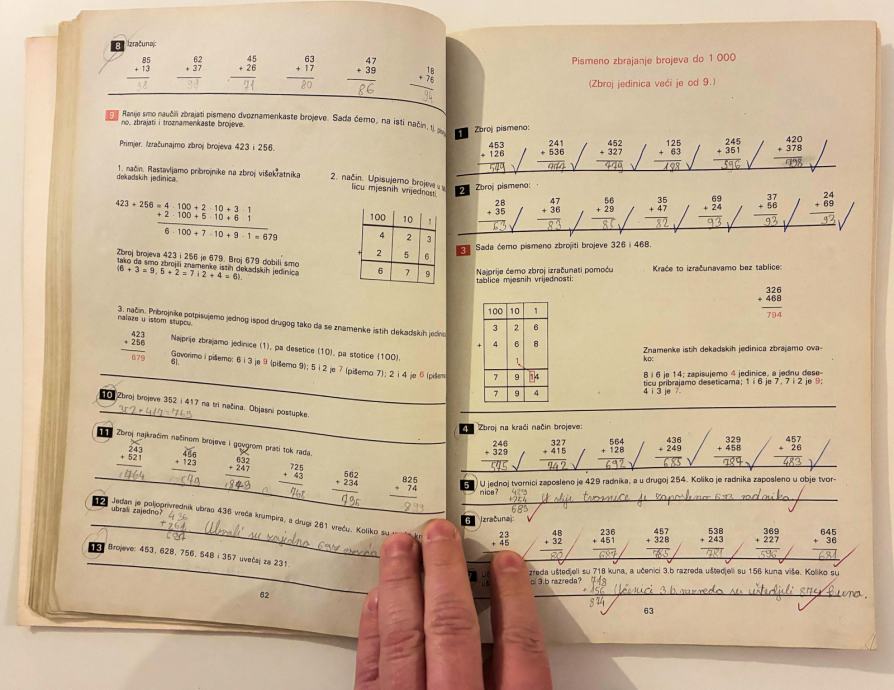 8 Izračunaj:
85 62 45 63 47 18
+ 13 + 37 + 26 + 17 + 39 + 76
98 99 71 80 86 94
9 Ranije smo naučili zbrajati pismeno dvoznamenkaste brojeve. Sada ćemo, na isti način,
no, zbrajati i troznamenkaste brojeve.
Primjer. Izračunajmo zbroj brojeva 423 i 256.
1. način. Rastavljamo pribrojnike na zbroj višekratnika
dekadskih jedinica.
423 + 256 = 4 · 100 + 2 · 10 + 3 · 1
+ 2 · 100 + 5 · 10 + 6 · 1
6 · 100 + 7 · 10 + 9 · 1 = 679
Zbroj brojeva 423 i 256 je 679. Broj 679 dobili smo
tako da smo zbrojili znamenke istih dekadskih jedinica
(6 + 3 = 9, 5 + 2 = 7 i 2 + 4 = 6).
2. način. Upisujemo brojeve u
licu mjesnih vrijednosti.
100 10 1
4 2 3
+ 2 5 6
6 7 9
3. način. Pribrojnike potpisujemo jednog ispod drugog tako da se znamenke istih dekadskih
nalaze u istom stupcu.
423
+ 256
679
Najprije zbrajamo jedinice (1), pa desetice (10), pa stotice (100).
Govorimo i pišemo: 6 i 3 je 9 (pišemo 9); 5 i 2 je 7 (pišemo 7); 2 i 4 je 6 (pišemo
6).
10 Zbroj brojeve 352 i 417 na tri načina. Objasni postupke.
352+417=769
11 Zbroj najkraćim načinom brojeve i govorom prati tok rada.
243 456 632 725 562 825
+ 521 + 123 + 247 + 43 + 234 + 74
764 579 879 768 796 899
12 Jedan je poljoprivrednik ubrao 436 vreća krumpira, a drugi 261 vreću. Koliko su
ubrali zajedno? 436
+261
697
Ubrali su zajedno 697 vreća
13 Brojeve: 453, 628, 756, 548 i 357 uvećaj za 231.
62
Pismeno zbrajanje brojeva do 1 000
(Zbroj jedinica veći je od 9.)
1 Zbroj pismeno:
453 241 452 125 245 420
+ 126 + 536 + 327 + 63 + 351 + 378
579 777 779 188 596 798
2 Zbroj pismeno:
28 47 56 35 69 37 24
+ 35 + 36 + 29 + 47 + 24 + 56 + 69
63 83 85 82 93 93 93
3 Sada ćemo pismeno zbrojiti brojeve 326 i 468.
Najprije ćemo zbroj izračunati pomoću
tablice mjesnih vrijednosti:
100 10 1
3 2 6
+ 4 6 8
1
7 9 14
7 9 4
Kraće to izračunavamo bez tablice:
326
+ 468
794
Znamenke istih dekadskih jedinica zbrajamo ova-
ko:
8 i 6 je 14; zapisujemo 4 jedinice, a jednu dese-
ticu pribrajamo deseticama; 1 i 6 je 7, 7 i 2 je 9;
4 i 3 je 7.
4 Zbroj na kraći način brojeve:
246 327 564 436 329 457
+ 329 + 415 + 128 + 249 + 458 + 26
575 742 692 685 787 483
5 U jednoj tvornici zaposleno je 429 radnika, a u drugoj 254. Koliko je radnika zaposleno u obje tvor-
nice? 429
+254
683
U obje tvornice je zaposleno 683 radnika
6 Izračunaj:
23 48 236 457 538 369 645
+ 45 + 32 + 451 + 328 + 243 + 227 + 36
80 687 785 781 596 681
razreda uštedjeli su 718 kuna, a učenici 3.b razreda uštedjeli su 156 kuna više. Koliko su
ci 3.b razreda? 718
+156
874
Učenici 3.b. razreda su uštedjeli 874 kuna.
63